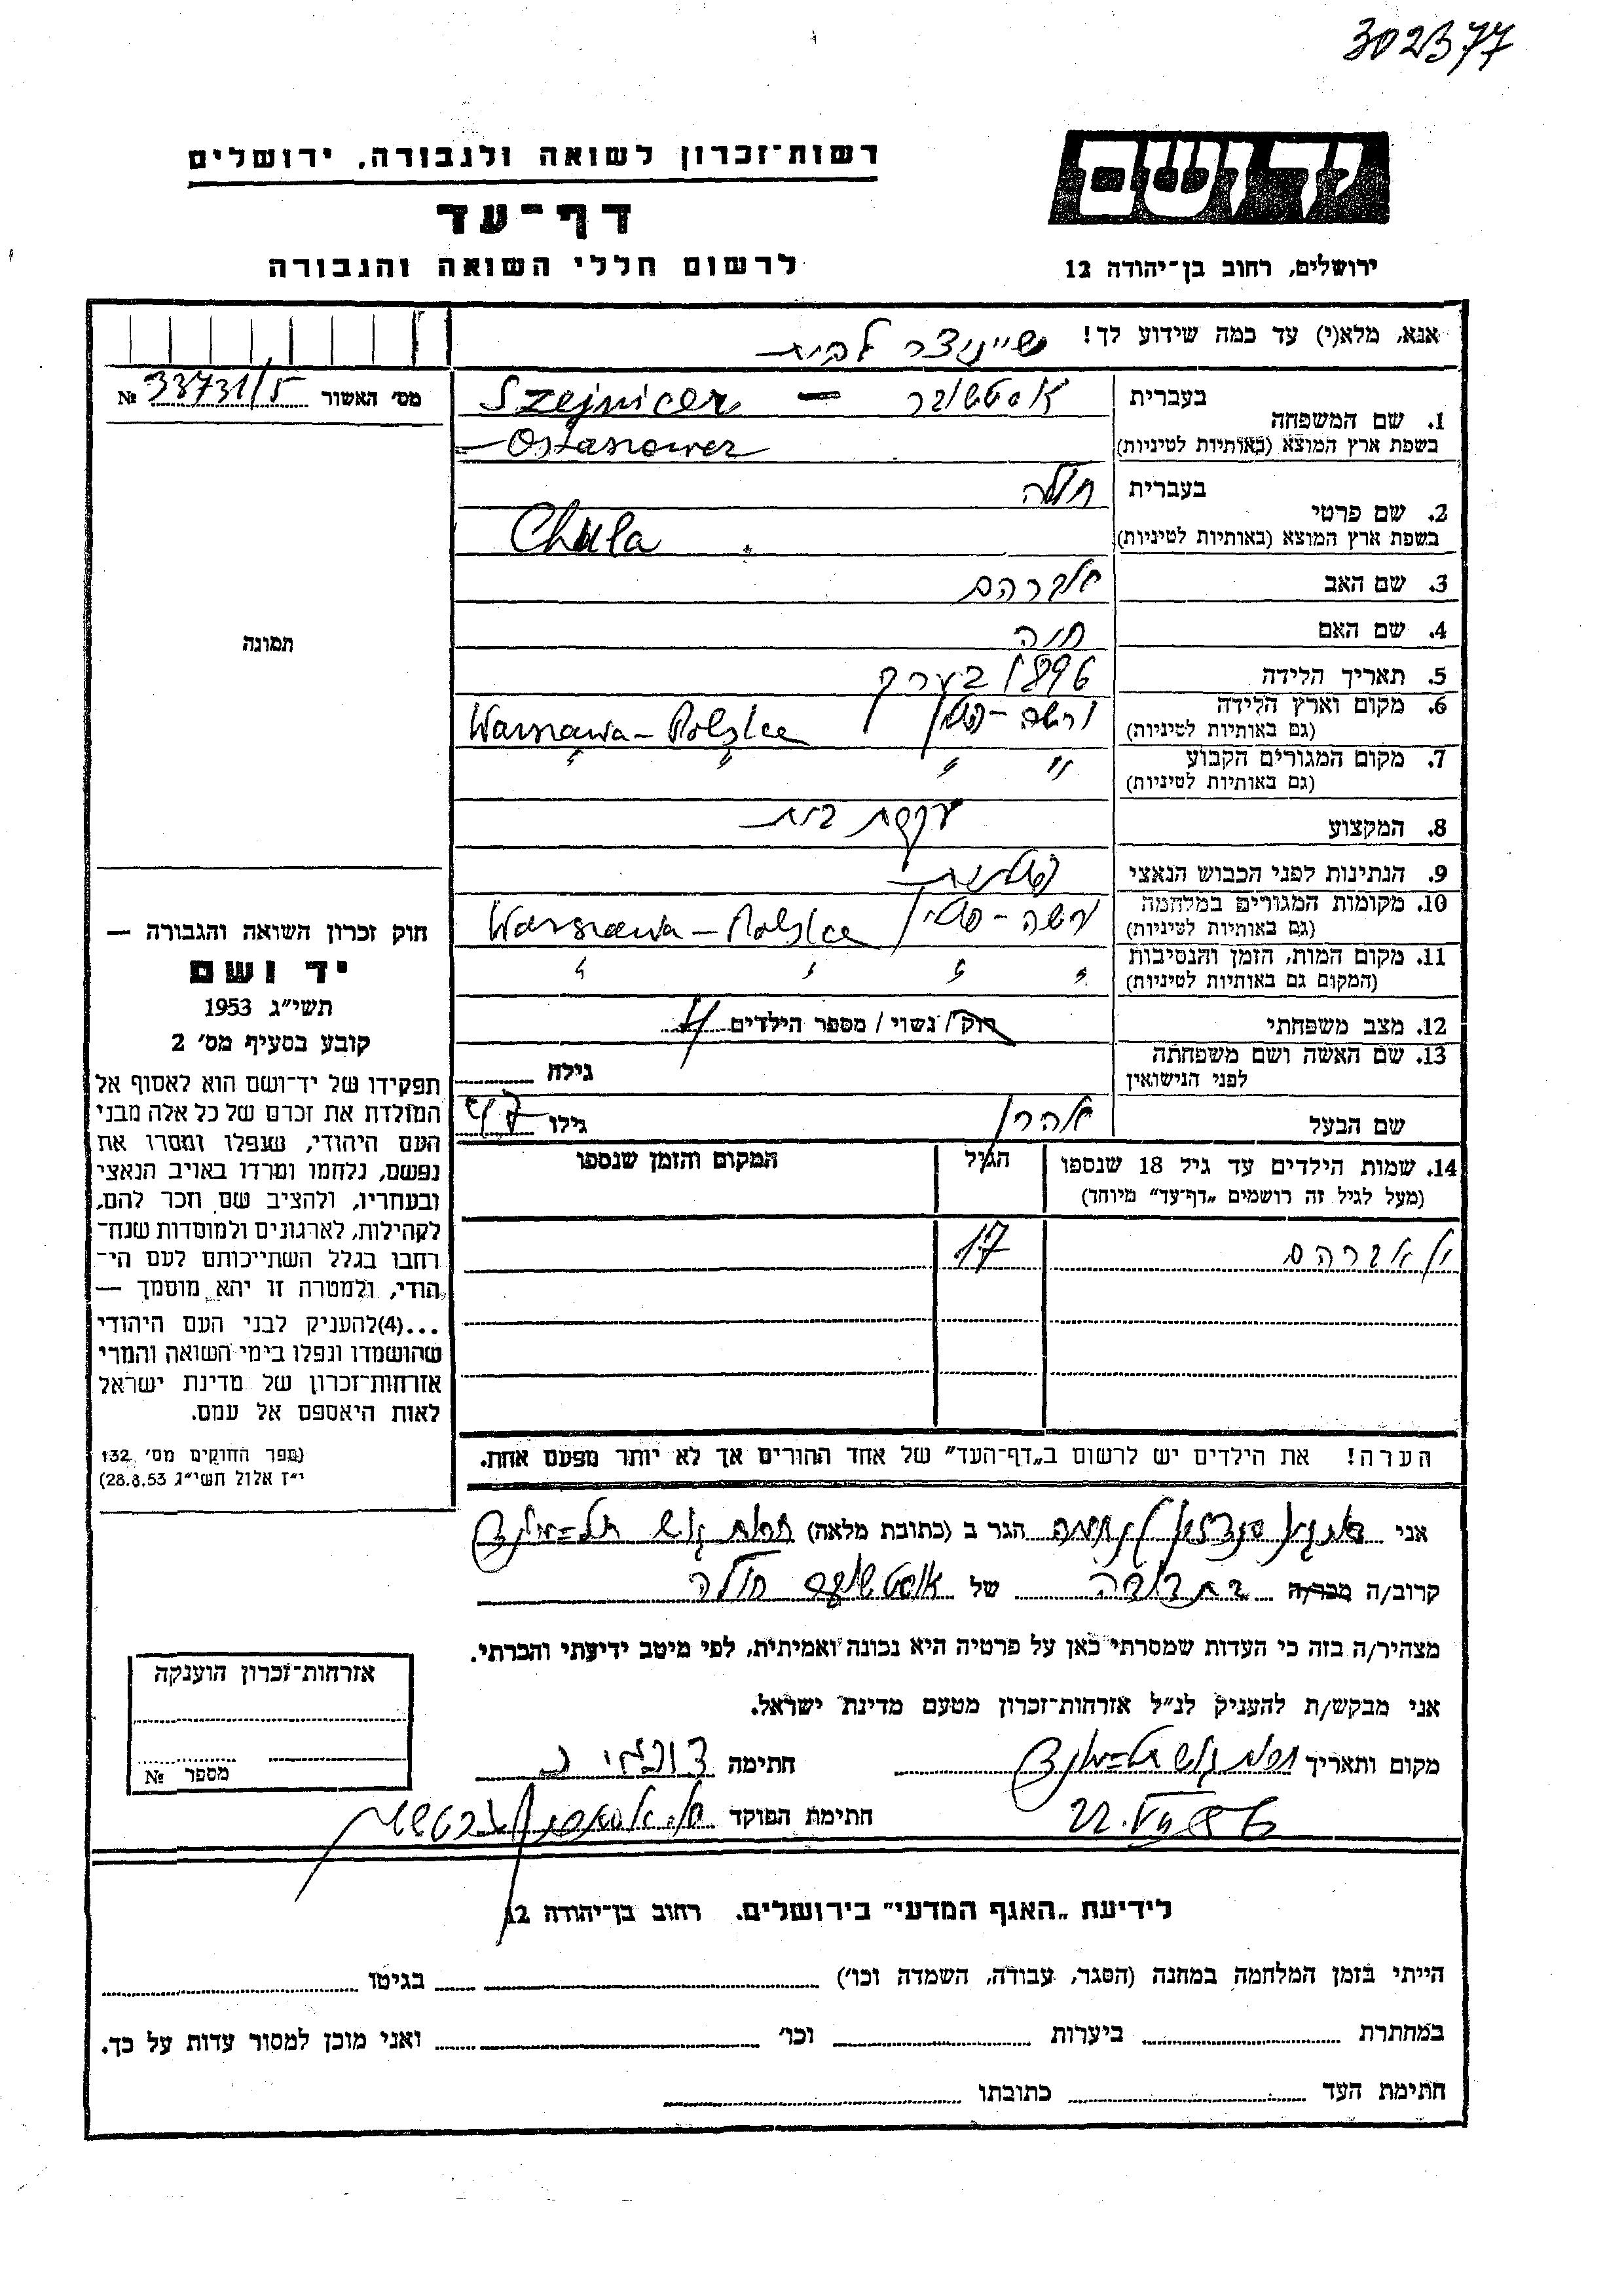 302377
יד ושם
רשות־זכרון לשואה ולגבורה, ירושלים
דף־עד
לרשום חללי השואה והגבורה
ירושלים, רחוב בן־יהודה 12
אנא, מלא(י) עד כמה שידוע לך! שיינוצר לבית
מס׳ האשור 33731/5 №
1. שם המשפחה בעברית Szejnicer —
בשפת ארץ המוצא (באותיות לטיניות)
2. שם פרטי בעברית חולה
בשפת ארץ המוצא (באותיות לטיניות) Chula
3. שם האב אברהם
4. שם האם חיה
5. תאריך הלידה 1896 בערך
6. מקום וארץ הלידה ורשה - פולין Warszawa - Polska
(גם באותיות לטיניות)
7. מקום המגורים הקבוע " "
(גם באותיות לטיניות)
8. המקצוע עקרת בית
9. הנתינות לפני הכבוש הנאצי פולנית
10. מקומות המגורים במלחמה ורשה - פולין Warszawa - Polska
(גם באותיות לטיניות)
11. מקום המות, הזמן והנסיבות " "
(המקום גם באותיות לטיניות)
12. מצב משפחתי רוק/ נשוי / מספר הילדים 4
13. שם האשה ושם משפחתה
לפני הנישואין גילה
שם הבעל אהרן גילו 47
14. שמות הילדים עד גיל 18 שנספו הגיל המקום והזמן שנספו
(מעל לגיל זה רושמים „דף־עד” מיוחד)
אברהם 17
הערה! את הילדים יש לרשום ב„דף־העד” של אחד ההורים אך לא יותר מפעם אחת.
תמונה
חוק זכרון השואה והגבורה —
יד ושם
תשי״ג 1953
קובע בסעיף מס׳ 2
תפקידו של יד־ושם הוא לאסוף אל
המולדת את זכרם של כל אלה מבני
העם היהודי, שנפלו ומסרו את
נפשם, נלחמו ומרדו באויב הנאצי
ובעוזריו, ולהציב שם וזכר להם,
לקהילות, לארגונים ולמוסדות שנח־
רבו בגלל השתייכותם לעם הי־
הודי, ולמטרה זו יהא מוסמך —
...(4)להעניק לבני העם היהודי
שהושמדו ונפלו בימי השואה והמרי
אזרחות־זכרון של מדינת ישראל
לאות היאספם אל עמם.
(ספר החוקים מס׳ 132
י״ז אלול תשי״ג 28.8.53)
אני הגר ב (כתובת מלאה)
קרוב/ה מכר/ה בת דודה של חולה
מצהיר/ה בזה כי העדות שמסרתי כאן על פרטיה היא נכונה ואמיתית, לפי מיטב ידיעתי והכרתי.
אני מבקש/ת להעניק לנ״ל אזרחות־זכרון מטעם מדינת ישראל.
מקום ותאריך חתימה
חתימת הפוקד
אזרחות־זכרון הוענקה
מספר №
לידיעת „האגף המדעי” בירושלים. רחוב בן־יהודה 12
הייתי בזמן המלחמה במחנה (הסגר, עבודה, השמדה וכו׳) בגיטו
במחתרת ביערות וכו׳ ואני מוכן למסור עדות על כך.
חתימת העד כתובתו